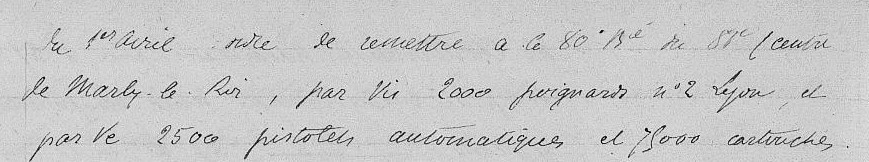 du 1er avril ordre de remettre a le 80e Bie du 81e (centre
de Marly-le-Roi, par Vie 2000 poignards n°2 Lyon, et
par Ve 2500 pistolets automatiques et 75000 cartouches.